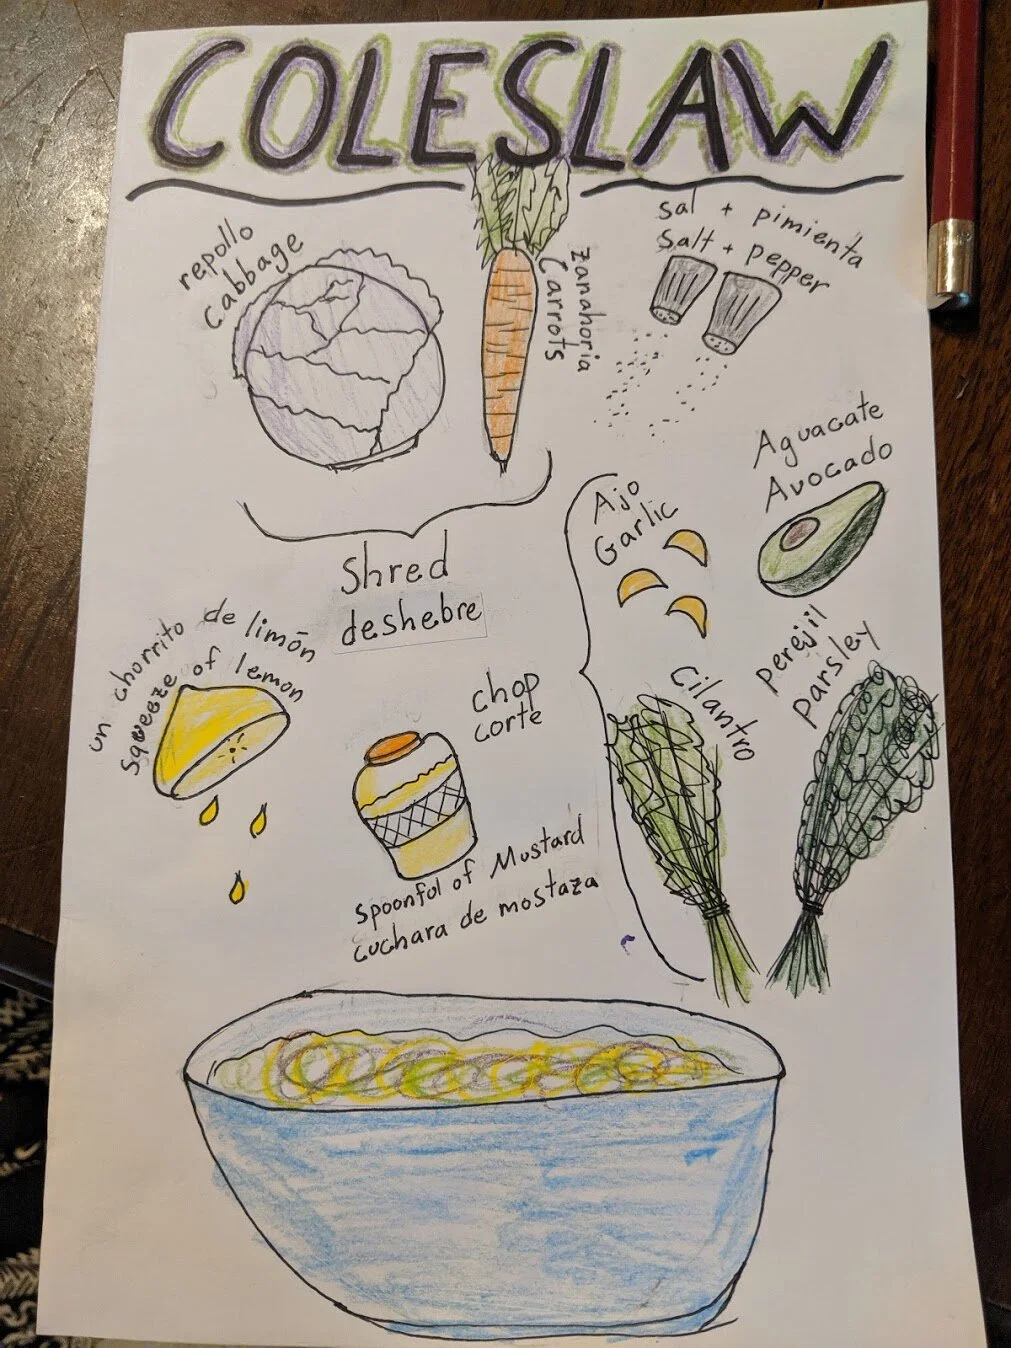 COLESLAW
repollo
cabbage
zanahoria
Carrots
sal + pimienta
salt + pepper
Aguacate
Avocado
Ajo
Garlic
Shred
deshebre
un chorrito de limón
squeeze of lemon
chop
corte
Cilantro
perejil
parsley
spoonful of Mustard
cuchara de mostaza